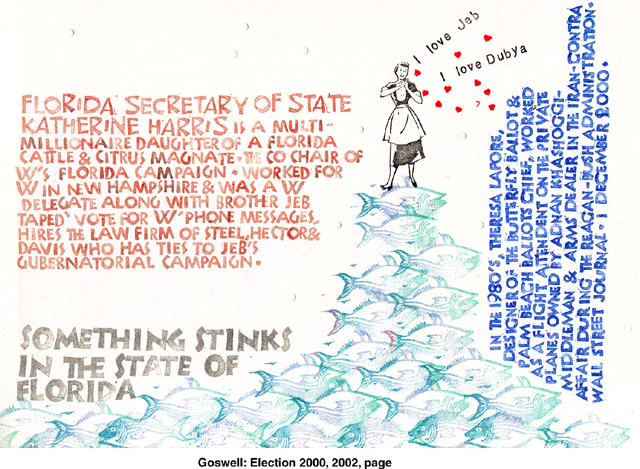 I love Jeb
I love Dubya
FLORIDA SECRETARY OF STATE
KATHERINE HARRIS IS A MULTI-
MILLIONAIRE DAUGHTER OF A FLORIDA
CATTLE & CITRUS MAGNATE • THE CO CHAIR OF
W'S FLORIDA CAMPAIGN • WORKED FOR
W IN NEW HAMPSHIRE & WAS A W
DELEGATE ALONG WITH BROTHER JEB
TAPED VOTE FOR W' PHONE MESSAGES,
HIRES THE LAW FIRM OF STEEL, HECTOR &
DAVIS WHO HAS TIES TO JEB'S
GUBERNATORIAL CAMPAIGN •
SOMETHING STINKS
IN THE STATE OF
FLORIDA
IN THE 1980'S, THERESA LAPORE,
DESIGNER OF THE BUTTERFLY BALLOT &
PALM BEACH BALLOTS CHIEF, WORKED
AS A FLIGHT ATTENDENT ON THE PRIVATE
PLANES OWNED BY ADNAN KHASHOGGI-
MIDDLEMAN & ARMS DEALER IN THE IRAN-CONTRA
AFFAIR DURING THE REAGAN-BUSH ADMINISTRATION•
WALL STREET JOURNAL • 1 DECEMBER 2000 •
Goswell: Election 2000, 2002, page